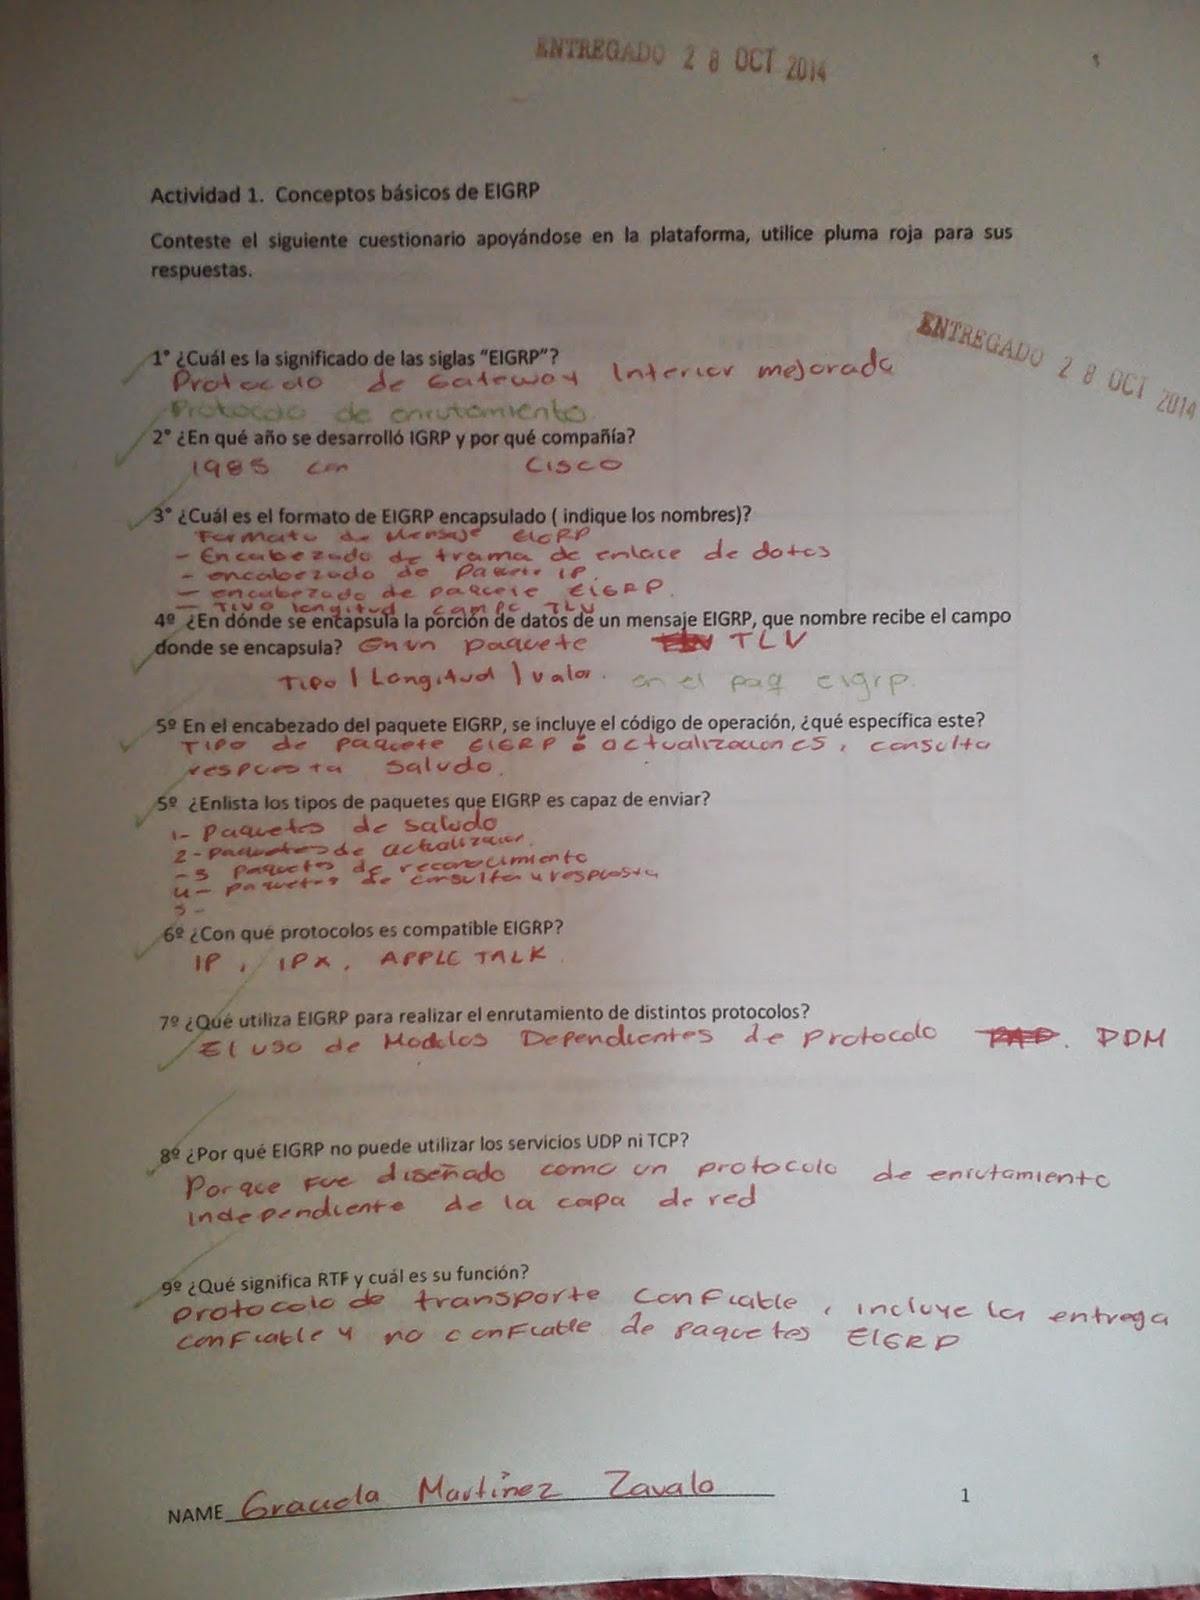 ENTREGADO 28 OCT 2014
1
Actividad 1. Conceptos básicos de EIGRP
Conteste el siguiente cuestionario apoyándose en la plataforma, utilice pluma roja para sus
respuestas.
ENTREGADO 28 OCT 2014
1° ¿Cuál es la significado de las siglas “EIGRP”?
Protocolo de Gateway Interior mejorada
Protocolo de enrutamiento.
2° ¿En qué año se desarrolló IGRP y por qué compañía?
1985 con CISCO
3° ¿Cuál es el formato de EIGRP encapsulado ( indique los nombres)?
Formato de Mensaje EIGRP
- Encabezado de trama de enlace de datos
- encabezado de paquete IP.
- encabezado de paquete EIGRP.
- Tivo longitud campo TLV
4º ¿En dónde se encapsula la porción de datos de un mensaje EIGRP, que nombre recibe el campo
donde se encapsula? En un paquete TLV
Tipo / Longitud / valor. en el paq eigrp.
5º En el encabezado del paquete EIGRP, se incluye el código de operación, ¿qué específica este?
Tipo de paquete EIGRP : actualizaciones, consulta
respuesta saludo.
5º ¿Enlista los tipos de paquetes que EIGRP es capaz de enviar?
1- Paquetes de saludo
2- paquetes de actualizacion.
- 3 paquetes de reconocimiento
4- paquetes de consulta y respuesta
5-
6º ¿Con qué protocolos es compatible EIGRP?
IP, IPX, APPLE TALK.
7º ¿Qué utiliza EIGRP para realizar el enrutamiento de distintos protocolos?
El uso de Modulos Dependientes de protocolo PAD. PDM
8º ¿Por qué EIGRP no puede utilizar los servicios UDP ni TCP?
Porque fue diseñado como un protocolo de enrutamiento
independiente de la capa de red
9º ¿Qué significa RTF y cuál es su función?
protocolo de transporte confiable, incluye la entrega
confiable y no confiable de paquetes EIGRP
NAME Graciela Martinez Zavala
1